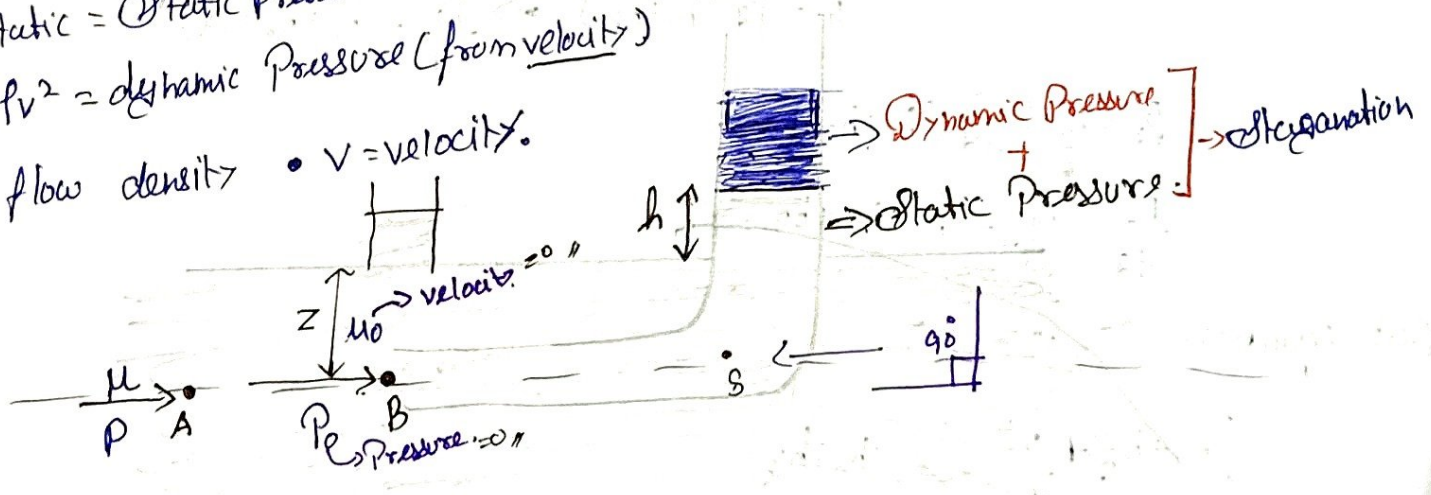 tatic = Static
ρv² = dynamic Pressure (from velocity)
flow density • V = velocity.
→ Dynamic Pressure
+
⇒ Static Pressure.
→ Staganation
h
Z
μ0 → velocity. =0 //
90°
S
μ
P A
B
Pe → Pressure. =0 //